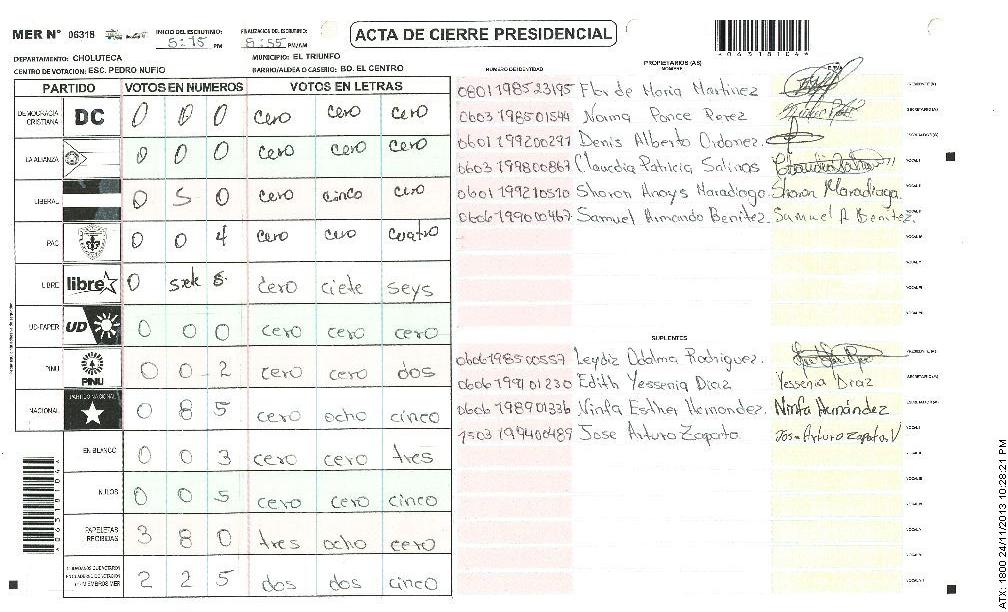 MER Nº 06318
INICIO DEL ESCRUTINIO: 5:15 PM
FINALIZACION DEL ESCRUTINIO: 5:55 PM/AM
ACTA DE CIERRE PRESIDENCIAL
*0631810 4*
DEPARTAMENTO: CHOLUTECA
MUNICIPIO: EL TRIUNFO
CENTRO DE VOTACION: ESC. PEDRO NUFIO
BARRIO/ALDEA O CASERIO: BO. EL CENTRO
PARTIDO VOTOS EN NUMEROS VOTOS EN LETRAS
DEMOCRACIA CRISTIANA DC 0 0 0 cero cero cero
LA ALIANZA 0 0 0 cero cero cero
LIBERAL 0 5 0 cero cinco cero
PAC 0 0 4 cero cero cuatro
LIBRE libre 0 siete 6 cero ciete seys
UD-FAPER UD 0 0 0 cero cero cero
PINU PINU 0 0 2 cero cero dos
NACIONAL PARTIDO NACIONAL 0 8 5 cero ocho cinco
EN BLANCO 0 0 3 cero cero tres
NULOS 0 0 5 cero cero cinco
PAPELETAS RECIBIDAS 3 8 0 tres ocho cero
2 2 5 dos dos cinco
NUMERO DE IDENTIDAD PROPIETARIOS (AS) NOMBRE FIRMA
0801198523195 Flor de Maria Martinez
0603 198501544 Norma Ponce Perez
0601 199200297 Denis Alberto Ordonez.
0603 199800867 Claudia Patricia Salinas
0601 199210510 Sharon Anays Maradiaga. Sharon Maradiaga.
0606 199000467 Samuel Armando Benitez. Samuel A Benitez.
SUPLENTES
0606198500557 Leydiz Odalma Rodriguez.
0606 199101230 Edith Yessenia Diaz Yessenia Diaz
0606 198901336 Ninfa Esther Hernandez. Ninfa Hernández
1503 199400489 Jose Arturo Zapata Jose Arturo Zapata V
ATX: 1800 24/11/2013 10:28:21 PM